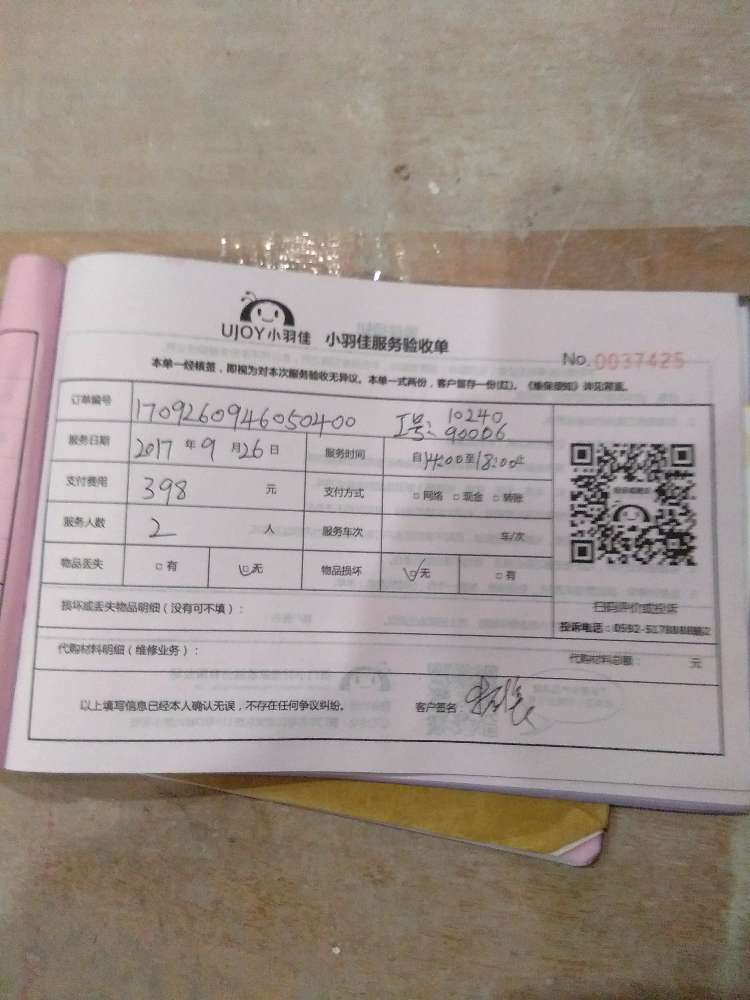 UJOY小羽佳 小羽佳服务验收单
No. 0037425
本单一经核签，即视为对本次服务验收无异议。本单一式两份，客户留存一份(红)。《维保须知》详见背面。
订单编号 170926094605040​0 工号: 10240
90006
服务日期 2017 年 9 月 26 日 服务时间 自14:00至18:00止
支付费用 398 元 支付方式 □ 网络 □ 现金 □ 转账
服务人数 2 人 服务车次 车/次
物品丢失 □ 有 ☑ 无 物品损坏 ☑ 无 □ 有
扫码评价或投诉
损坏或丢失物品明细（没有可不填）：
投诉电话：0592-5178888
代购材料明细（维修业务）：
代购材料总额： 元
以上填写信息已经本人确认无误，不存在任何争议纠纷。 客户签名：